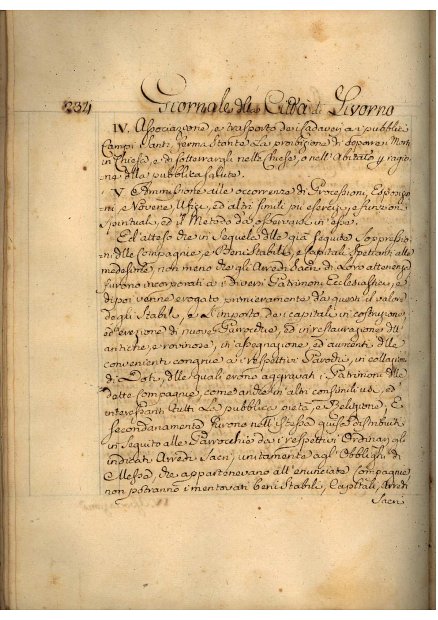 234 Giornale della Città di Livorno
IV. Associazione, e trasporto dei Cadaveri ai pubblici
Campi Santi, ferma stante la proibizione di deporre i Morti
in Chiesa, e di sotterrargli nelle Chiese, o nell'Abitato p ragio
ne della pubblica salute.
V. Ammissione alle occorrenze di Processioni, Esposizio
ni, e Novene, Ufizi, ed altri simili pii esercizi, e funzioni
spirituali, ed il Metodo da osservarsi in esse.
Ed atteso che in sequela delle già seguite Soppressio
ni delle Compagnie, e Beni Stabili, e Capitali spettanti alle
medesime, non meno che gli Arredi Sacri di loro attenenza
furono incorporati ai diversi Patrimoni Ecclesiastici, e
di poi venne erogato primieramente da questi il valore
degli Stabili, e l'importo dei capitali in costruzione,
ed erezione di nuove Parrocchie, ed in restaurazione dell'
antiche, e rovinose, in assegnazione, ed aumenti delle
convenienti congrue ai respettivi Parochi, in collazione
di Doti, delle quali erono aggravati i Patrimoni delle
dette Compagnie, come anche in altri consimili usi, ed
interessanti tutti la pubblica pietà, e Religione, E
secondariamente furono nell'istessa guisa distribuiti
in seguito alle Parrocchie dai respettivi Ordinari gli
indicati Arredi Sacri, unitamente agl'Obblighi di
Messa, che appartenevano all'enunciate Compagnie
non potranno i mentovati beni Stabili, Capitali, Arredi
Sacri